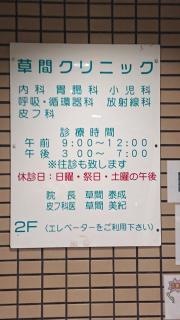 草間クリニック
内科 胃腸科 小児科
呼吸・循環器科 放射線科
皮フ科
診療時間
午前 9:00〜12:00
午後 3:00〜 7:00
※往診も致します
休診日：日曜・祭日・土曜の午後
院長 草間泰成
皮フ科医 草間美紀
2F (エレベーターをご利用下さい)